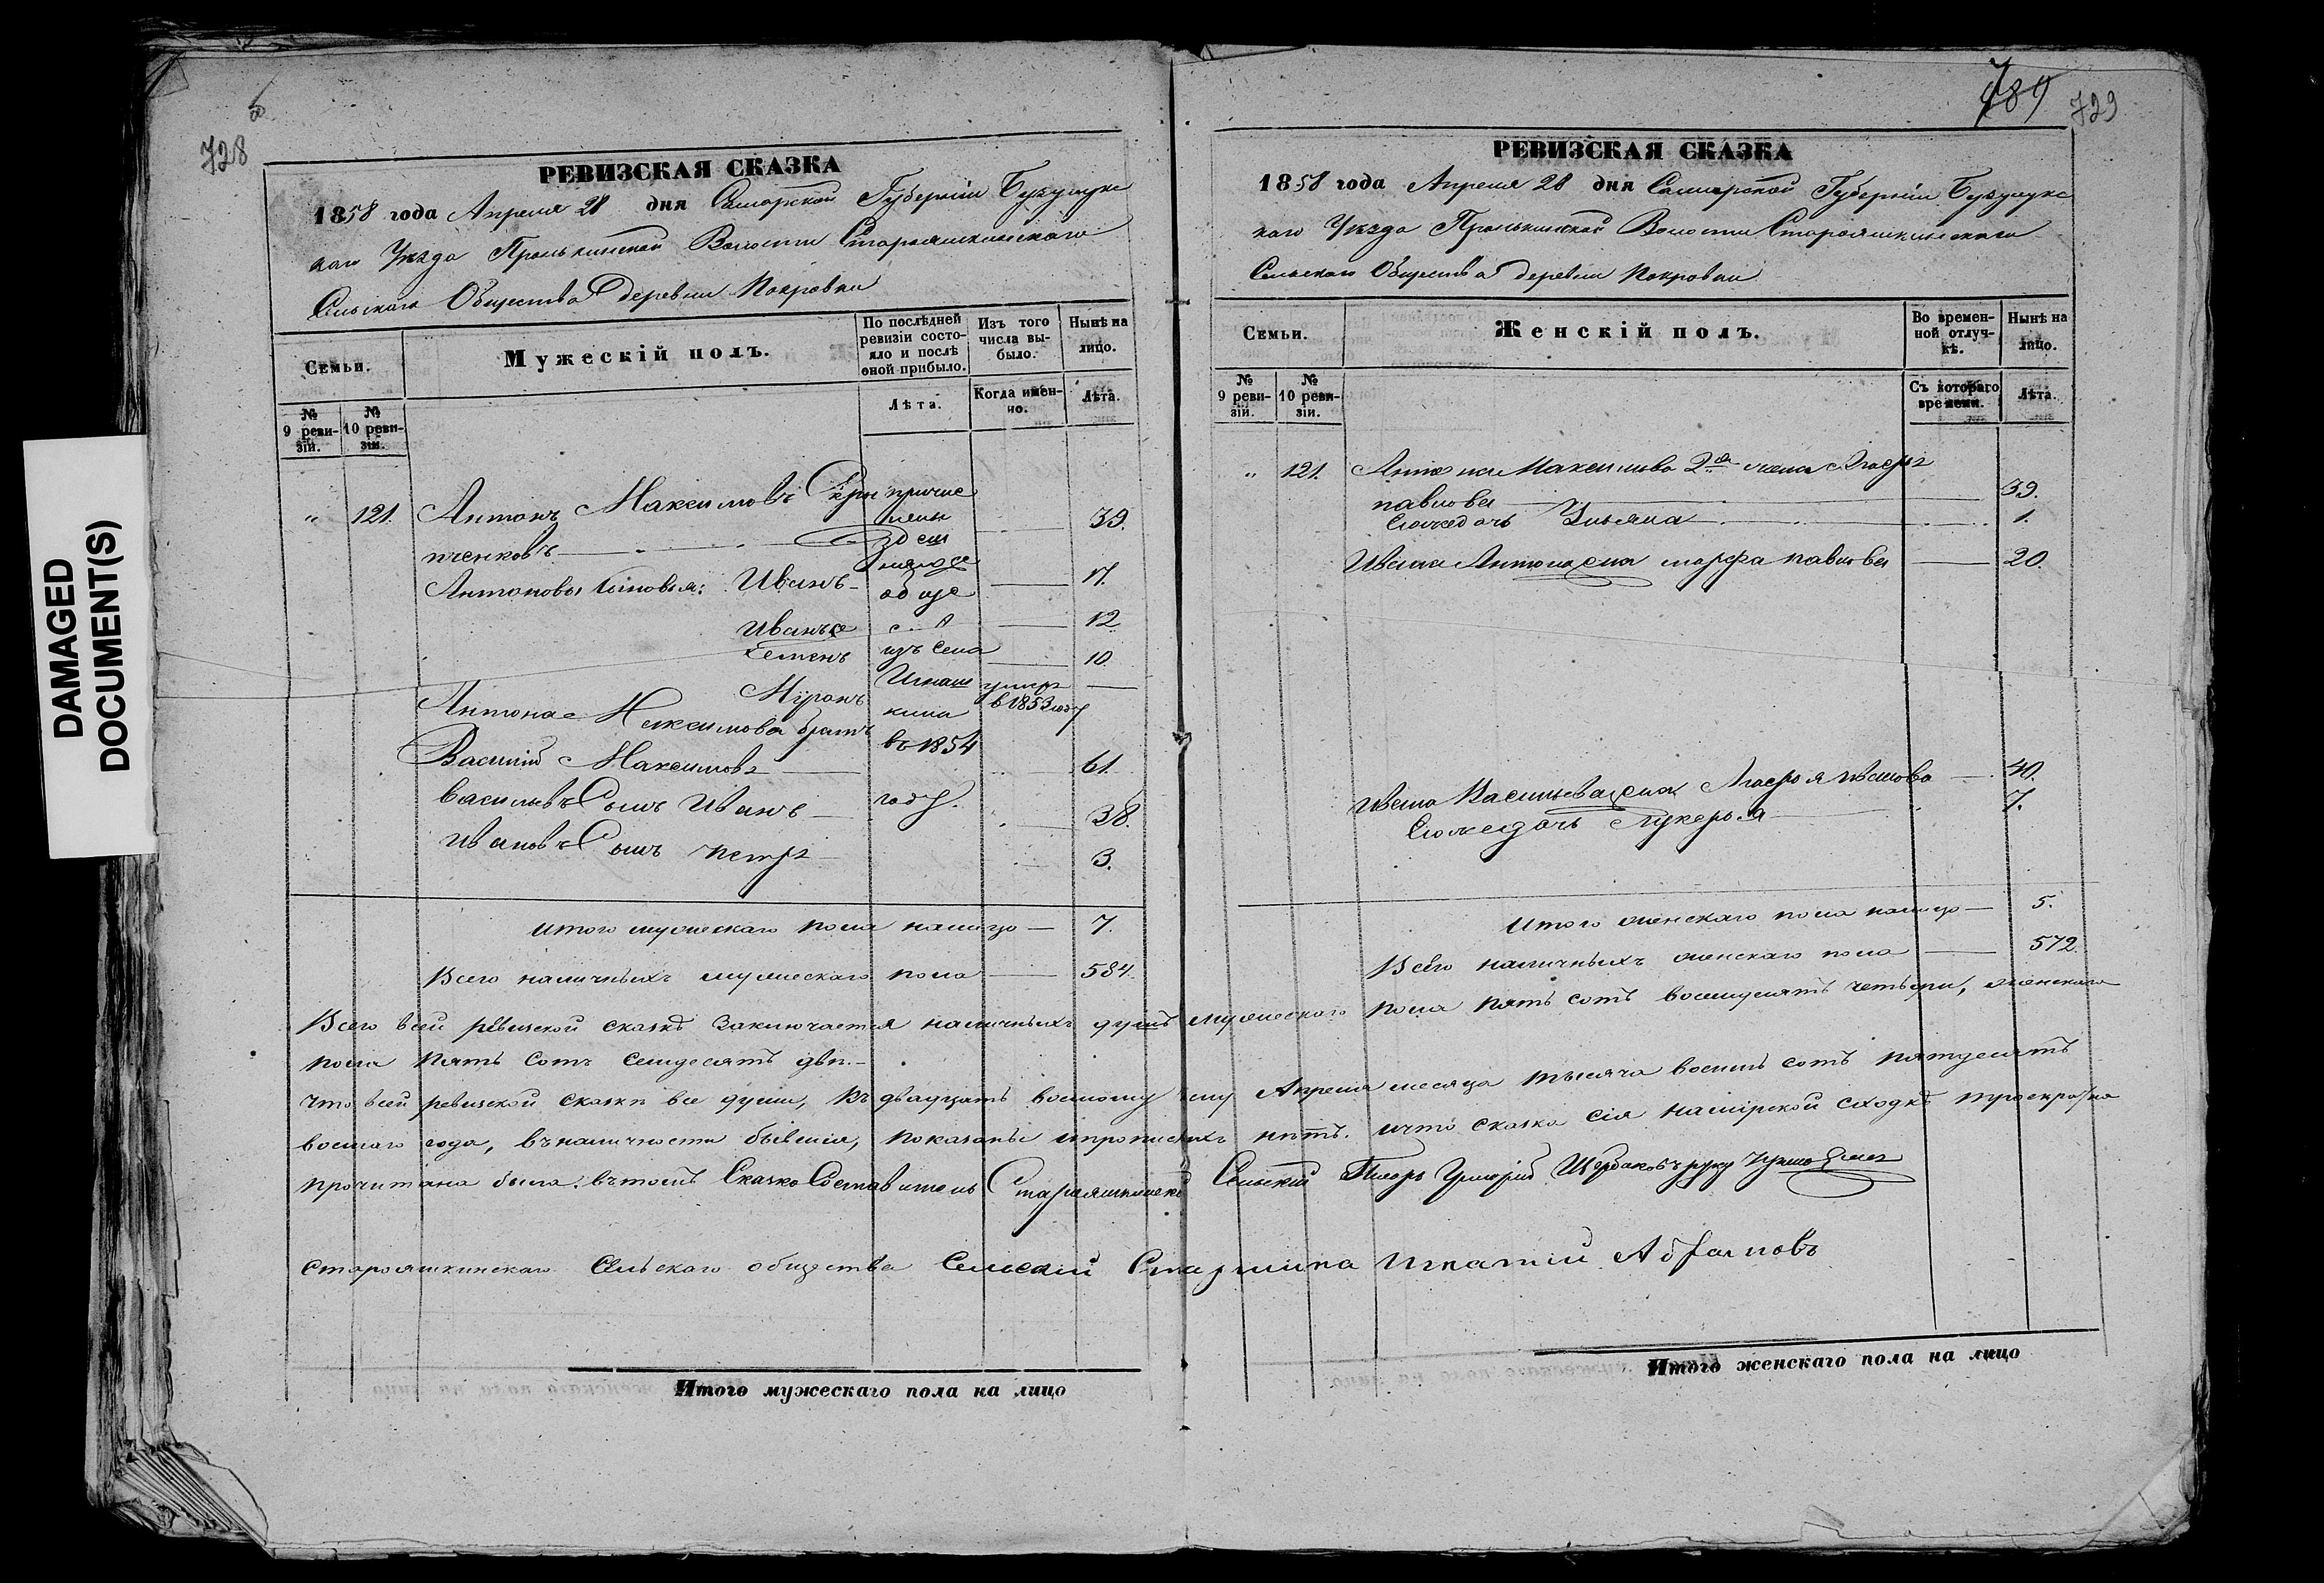 DAMAGED
DOCUMENT(S)
728
РЕВИЗСКАЯ СКАЗКА
1858 года Апреля 28 дня Самарской Губерніи Бузулукс
каго Уѣзда Пронькинской Волости Старояшкинскаго
Сельскаго Общества деревни Покровки
Семьи.
Мужескій полъ.
По послѣдней ревизіи состояло и послѣ оной прибыло.
Изъ того числа выбыло.
Нынѣ на лицо.
№ 9 ревизіи.
№ 10 ревизіи.
Лѣта.
Когда именно.
Лѣта.
" 121. Антонъ Максимовъ причис
лены 39.
ченковъ здеш
Антоновы сыновья: Иванъ 17.
обще
Иванъ с. в 12
Семенъ изъ села 10.
Миронъ Игнаш умеръ —
кина в 1853 году
Антона Максимова братъ
Василій Максимовъ въ 1854 61.
Васильевъ Сынъ Иванъ году. 38.
Ивановъ Сынъ Петръ 3.
Итого мужескаго пола налицо — 7.
Всего наличныхъ мужескаго пола — 584.
789
729
РЕВИЗСКАЯ СКАЗКА
1858 года Апреля 28 дня Самарской Губерніи Бузулукс
каго Уѣзда Пронькинской Волости Старояшкинскаго
Сельскаго Общества деревни Покровки
Семьи.
Женскій полъ.
Во временной отлучкѣ.
Нынѣ на лицо.
№ 9 ревизіи.
№ 10 ревизіи.
Съ котораго времени.
Лѣта.
" 121. Антона Максимова 2я жена
Павлова 39.
ея дочь Ульяна 1.
Ивана Антонова жена Марфа Павлова 20.
Ивана Васильева жена 40.
ея дочь Лукерья 7.
Итого женскаго пола налицо — 5.
Всего наличныхъ женскаго пола — 572.
Всего в сей ревизской сказкѣ заключается наличныхъ душъ мужескаго пола пять сотъ восемдесятъ четыри, женскаго
пола пять сотъ семдесятъ двѣ.
что в сей ревизской сказки все души, къ двадцать восмому чису Апреля месяца тысяча восемь сотъ пятдесятъ
восмаго года, въ наличности бывшія, показаны и прописныхъ нѣтъ. и что сказка сія на мірской сходкѣ троекратно
прочитана была. въ томъ Сказко Составитель Старояшкинскій Сельскій Писарь Григорій Щербаковъ руку приложилъ
Старояшкинскаго Сельскаго общества Сельскій Старшина Игнатій Абрамовъ
Итого мужескаго пола на лицо
Итого женскаго пола на лицо